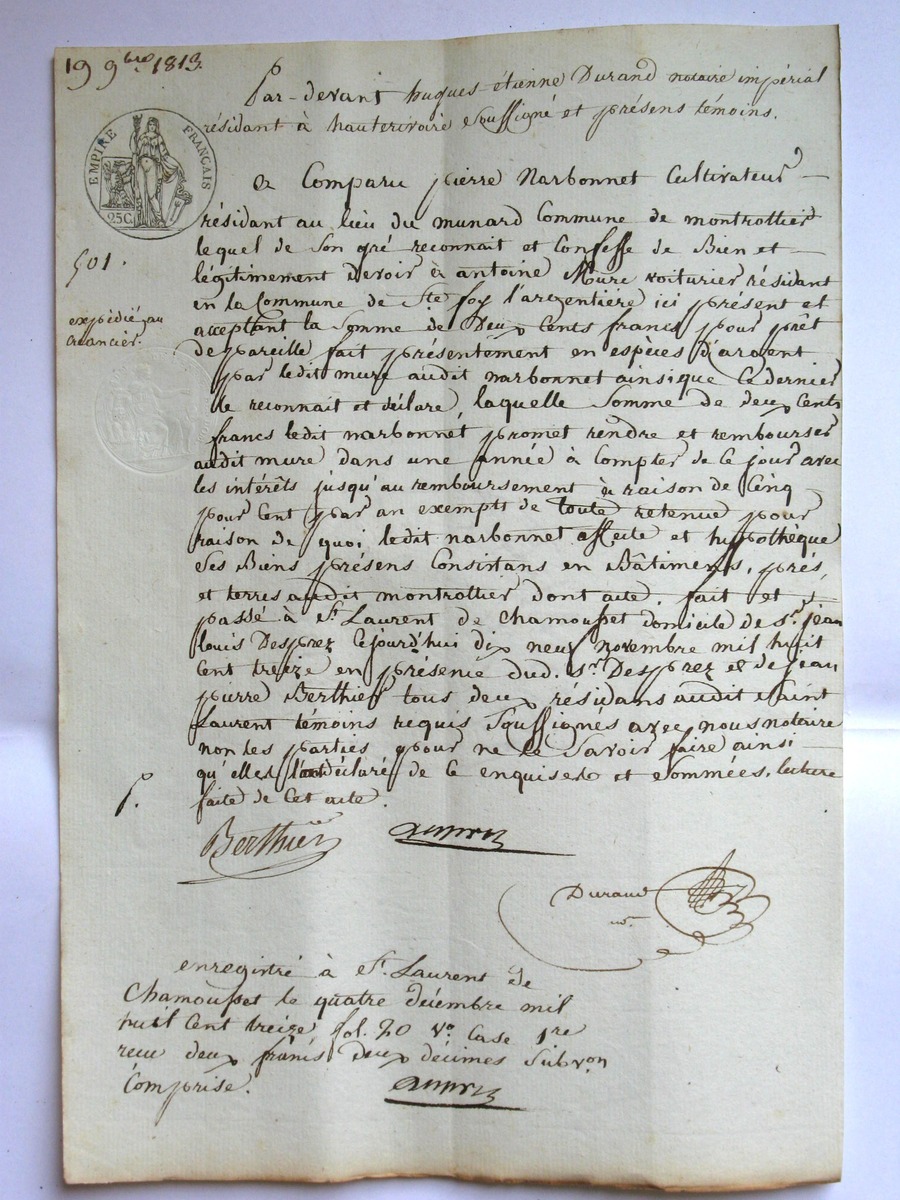 19 9bre 1813.
Par-devant hugues-étienne Durand notaire impérial
résidant à hauterivoire soussigné et présens témoins.
EMPIRE FRANÇAIS
25 C.
a Comparu pierre Narbonnet Cultivateur
résidant au lieu du munard Commune de montrottier
lequel de Son gré reconnait et Confesse de Bien et
501.
légitimement devoir à antoine Mure voiturier résidant
en la Commune de Ste foy l'argentière ici présent et
expédié au
créancier.
acceptant la Somme de Deux Cents francs pour prêt
de pareille fait présentement en espèces d'argent
par ledit mure audit narbonnet ainsi que Ce dernier
le reconnait et déclare, laquelle Somme de deux Cents
francs ledit narbonnet promet rendre et rembourser
audit mure dans une année à Compter de Ce jour avec
les intérêts jusqu'au remboursement à raison de Cinq
pour Cent par an exempts de toute retenue pour
raison de quoi ledit narbonnet affecte et hypothèque
Ses Biens présens Consistans en Bâtimens, prés
et terres audit montrottier dont acte. fait et
passé à St. Laurent de Chamousset domicile de Sr. jean
louis Desprez Cejourd'hui dix neuf novembre mil huit
Cent treize en présence dud. Sr. Desprez et de jean
pierre Berthier tous deux résidans audit Saint
Laurent témoins requis Soussignés avec nous notaire
non les parties pour ne le Savoir faire ainsi
qu'elles l'ont déclaré de Ce enquises et Sommées, lecture
faite de Cet acte.
Berthier
Durand
nre.
enregistré à St. Laurent de
Chamousset le quatre décembre mil
huit Cent treize fol. 20 Vo. Case 1re
reçu deux francs deux décimes Subvon
Comprise.